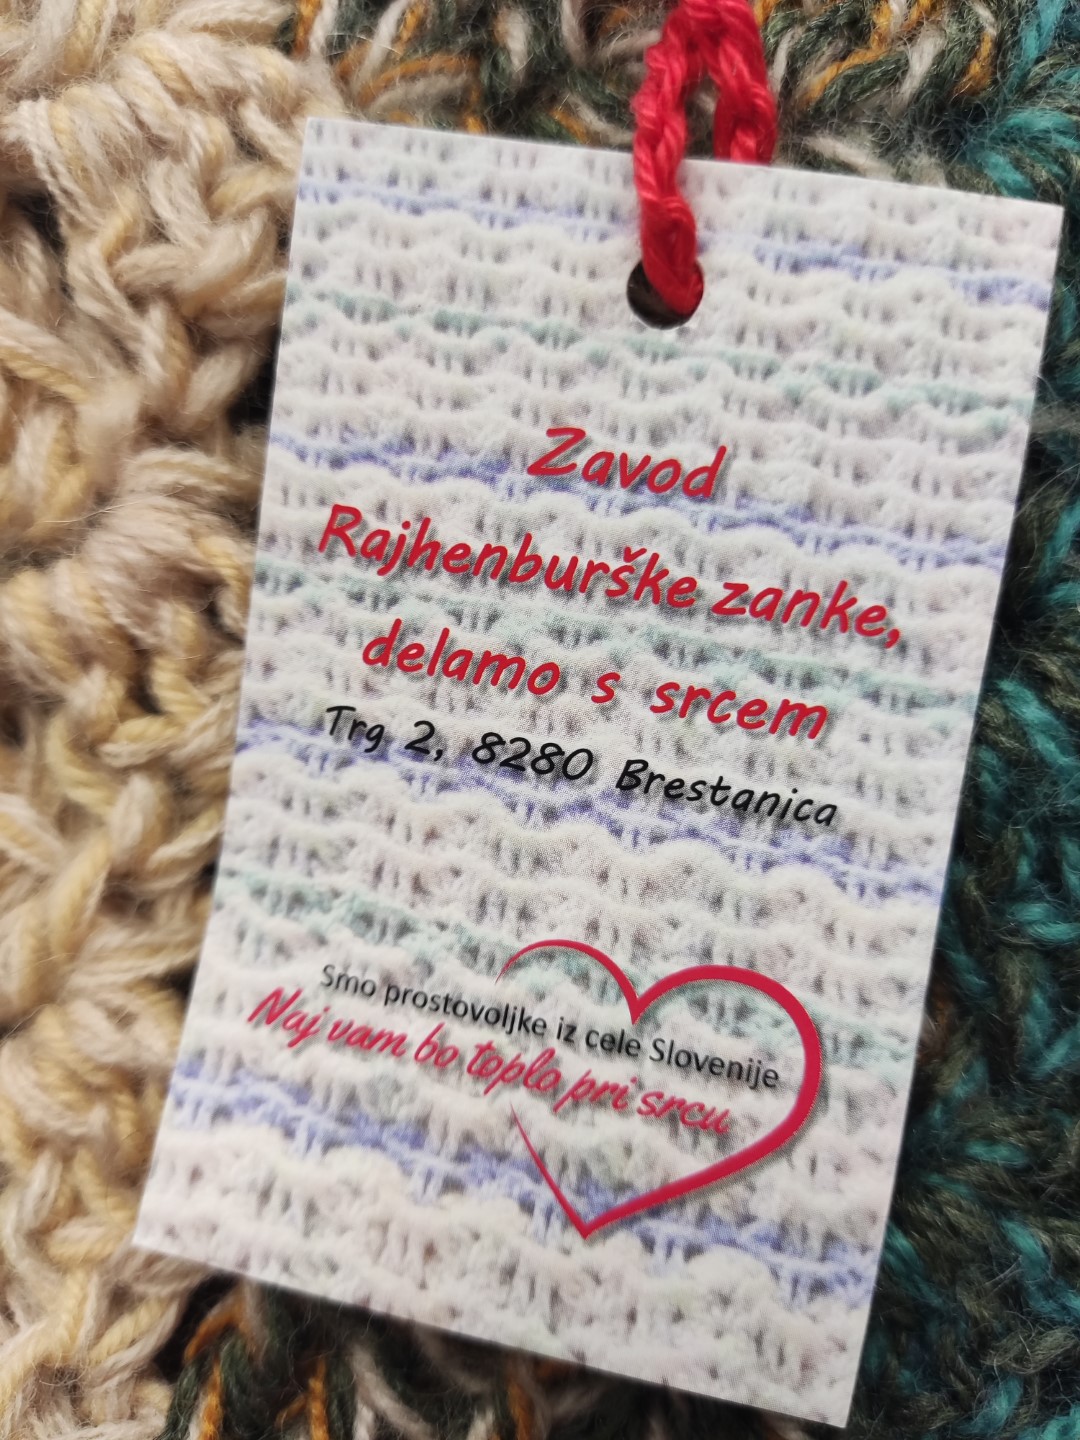 Zavod
Rajhenburške zanke,
delamo s srcem
Trg 2, 8280 Brestanica
Smo prostovoljke iz cele Slovenije
Naj vam bo toplo pri srcu